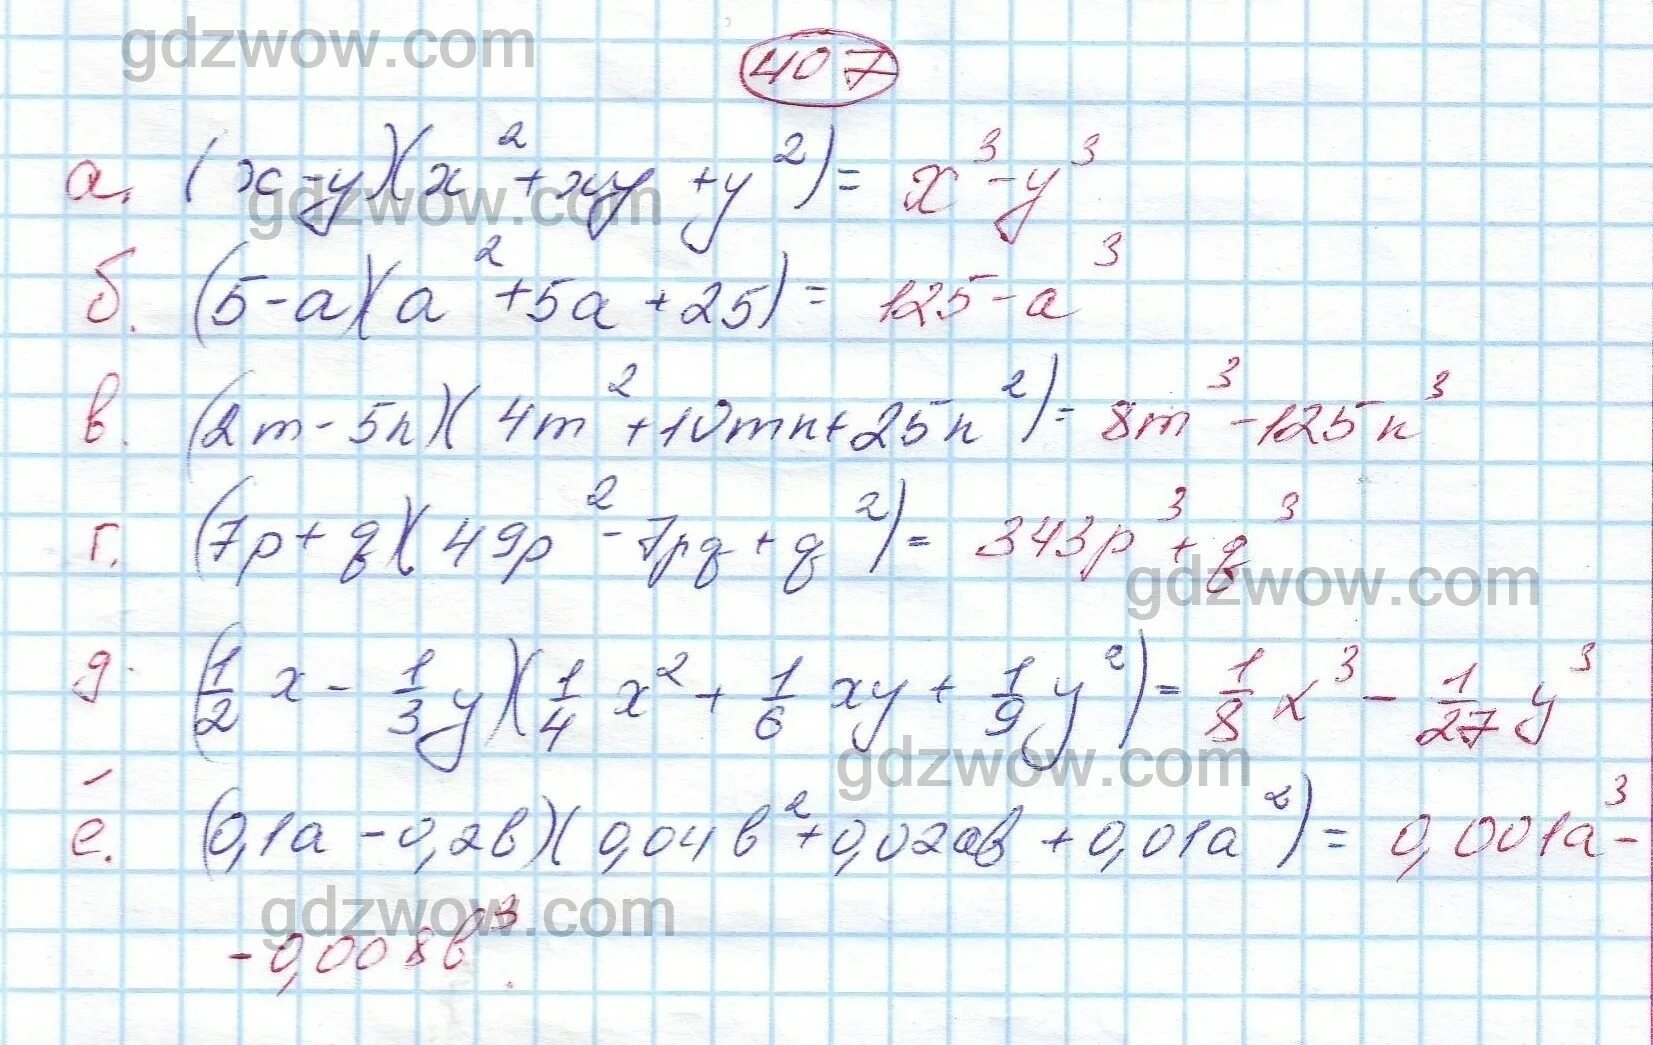 gdzwow.com
407
а. (x-y)(x²+xy+y²)= x³-y³
gdzwow.com
б. (5-a)(a²+5a+25)= 125-a³
в. (2m-5n)(4m²+10mn+25n²)= 8m³-125n³
г. (7p+q)(49p²-7pq+q²)= 343p³+q³
gdzwow.com
д. (1/2 x - 1/3 y)(1/4 x² + 1/6 xy + 1/9 y²)= 1/8 x³ - 1/27 y³
gdzwow.com
е. (0,1a-0,2b)(0,04b²+0,02ab+0,01a²)= 0,001a³-
-0,008b³.
gdzwow.com